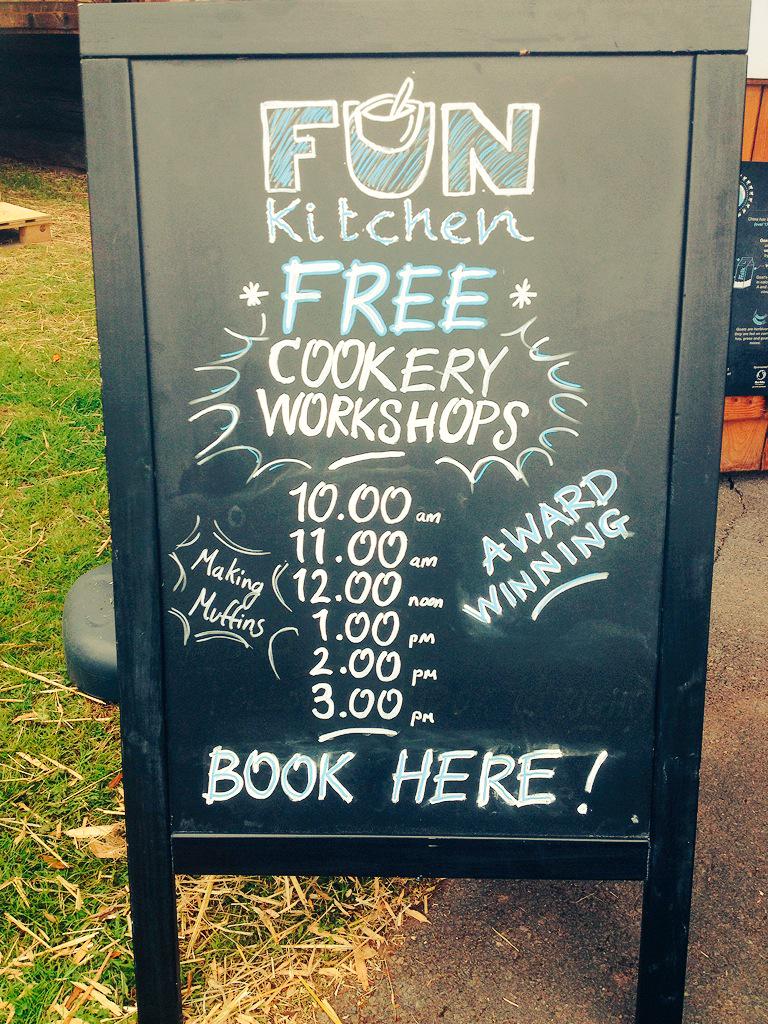 FUN
Kitchen
* FREE *
COOKERY
WORKSHOPS
10.00 am
11.00 am
12.00 noon
1.00 pm
2.00 pm
3.00 pm
Making
Muffins
AWARD
WINNING
BOOK HERE!